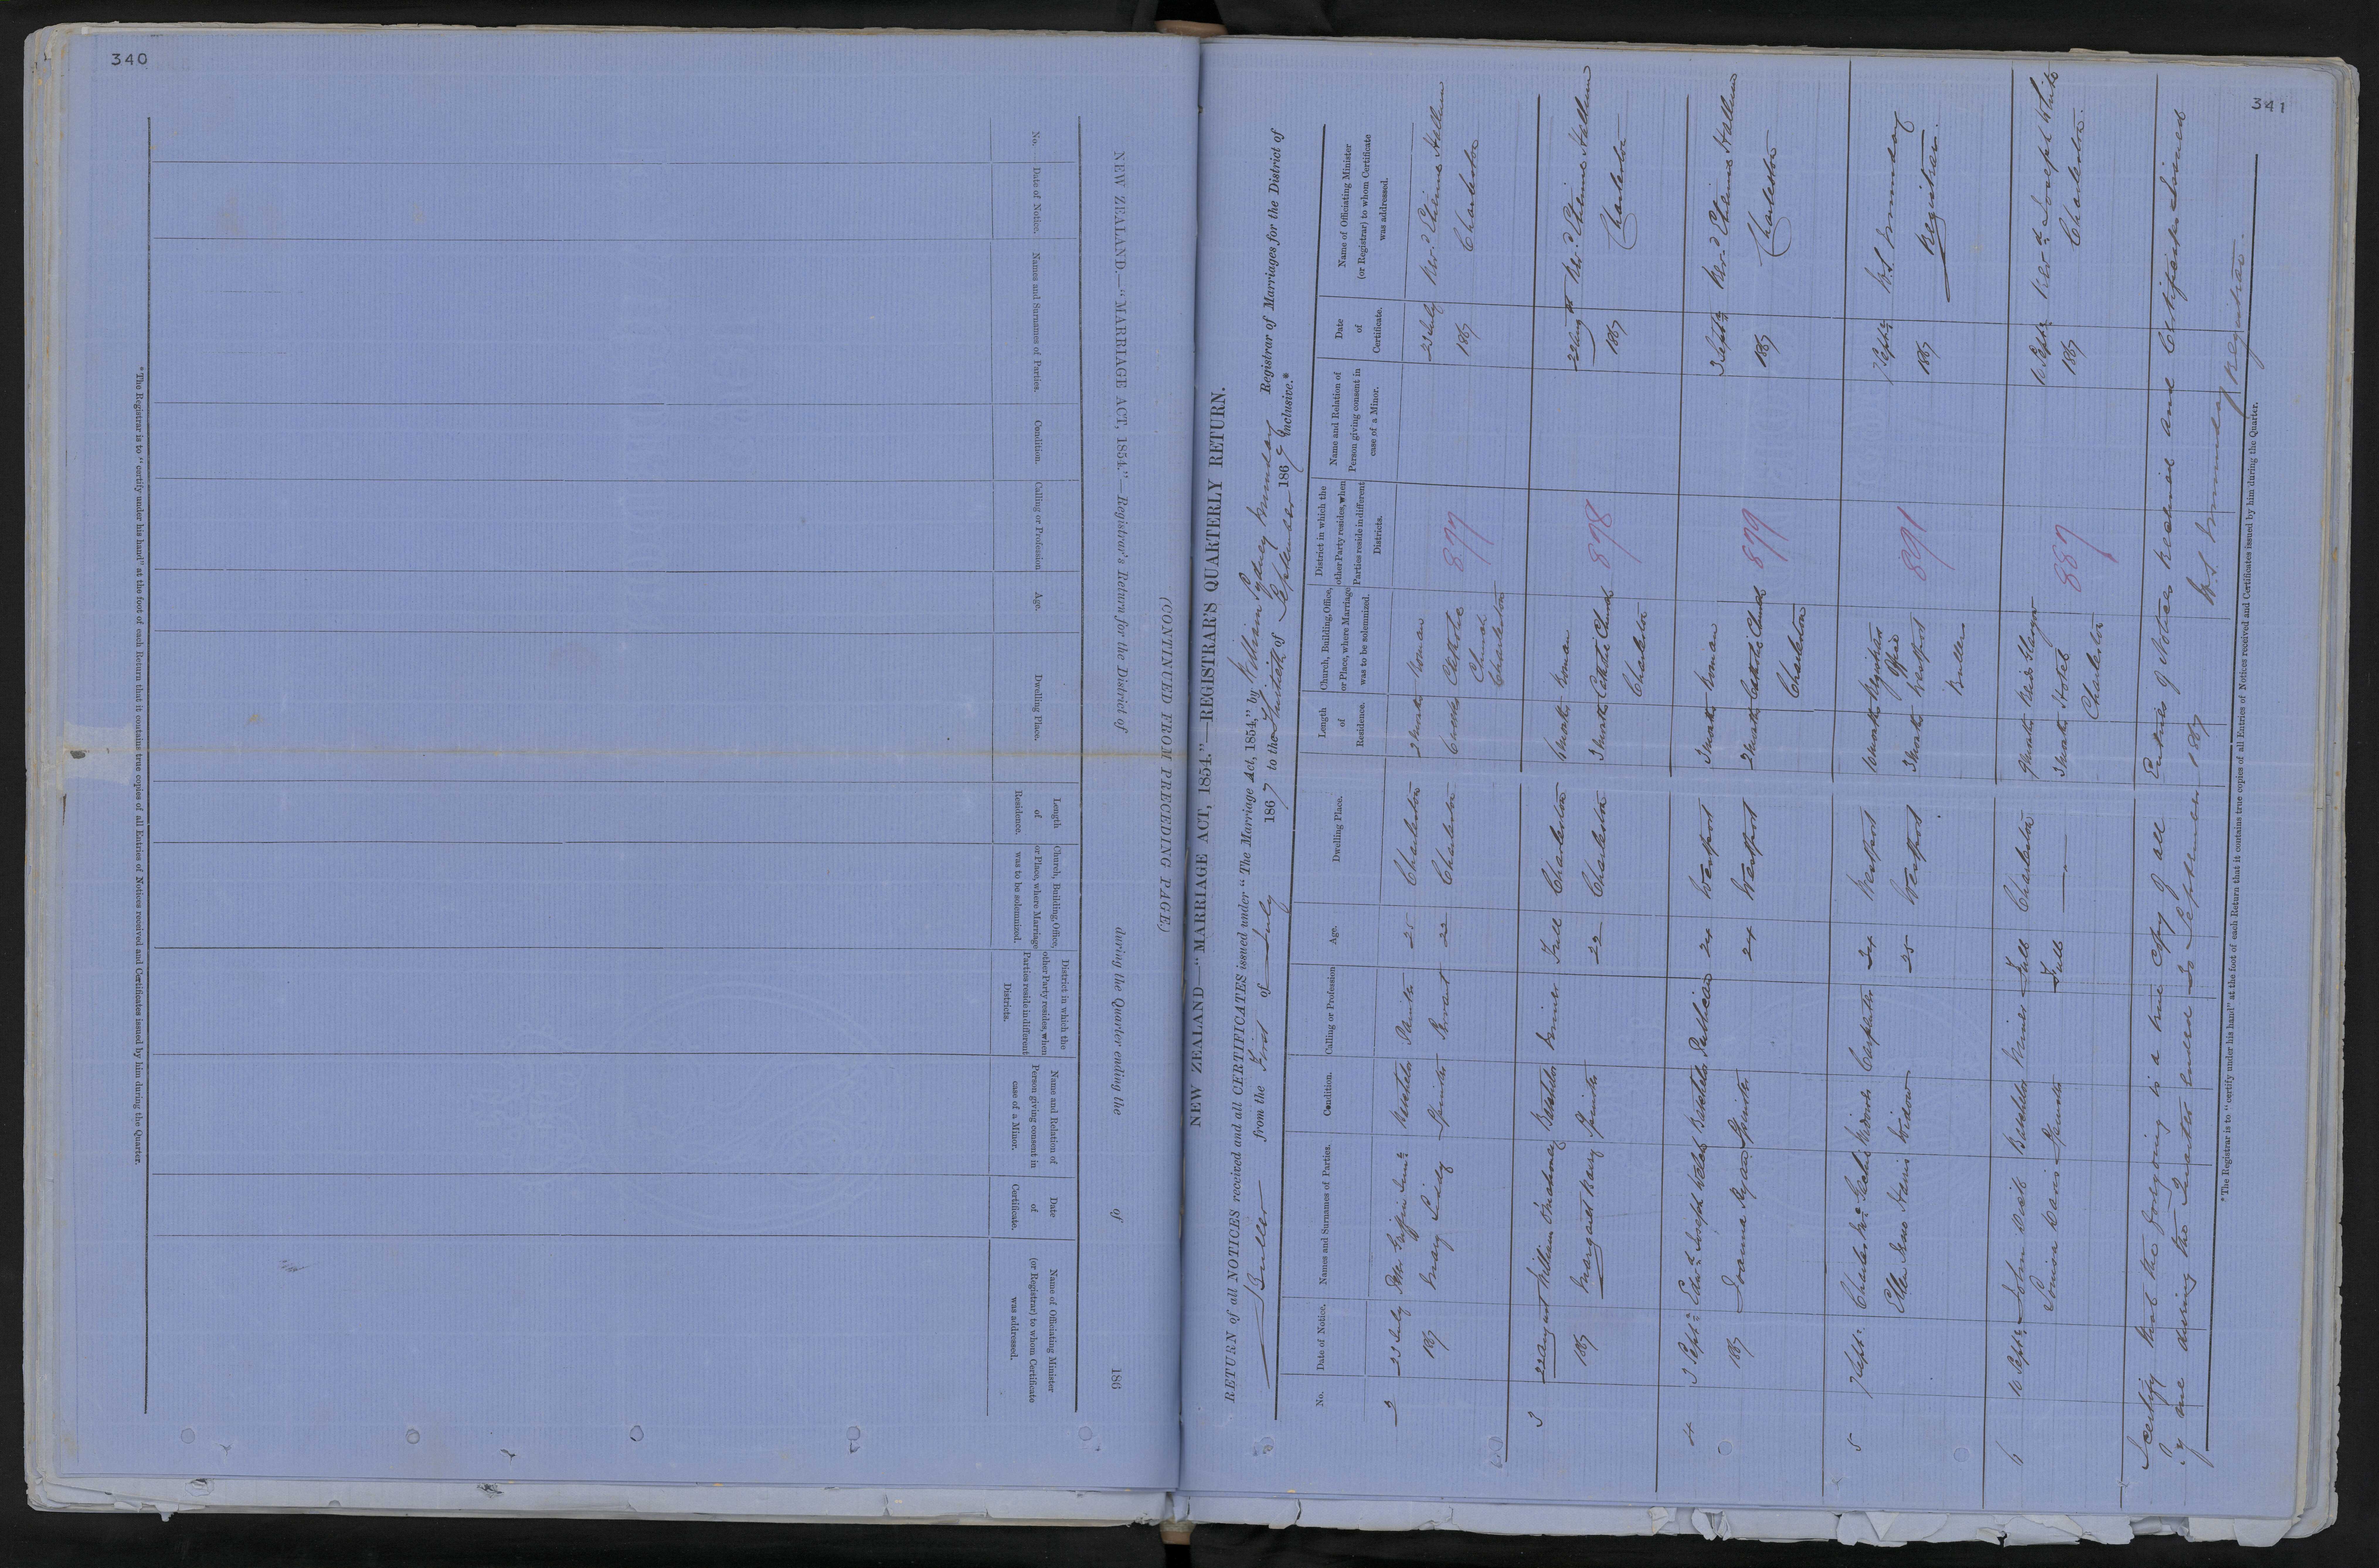 340
NEW ZEALAND.—"MARRIAGE ACT, 1854."—Registrar's Return for the District of during the Quarter ending the of 186
(CONTINUED FROM PRECEDING PAGE.)
No.
Date of Notice.
Names and Surnames of Parties.
Condition.
Calling or Profession
Age.
Dwelling Place.
Length
of
Residence.
Church, Building, Office,
or Place, where Marriage
was to be solemnized.
District in which the
other Party resides, when
Parties reside in different
Districts.
Name and Relation of
Person giving consent in
case of a Minor.
Date
of
Certificate.
Name of Officiating Minister
(or Registrar) to whom Certificate
was addressed.
* The Registrar is to "certify under his hand" at the foot of each Return that it contains true copies of all Entries of Notices received and Certificates issued by him during the Quarter.
341
NEW ZEALAND—"MARRIAGE ACT, 1854."—REGISTRAR'S QUARTERLY RETURN.
RETURN of all NOTICES received and all CERTIFICATES issued under "The Marriage Act, 1854," by William Sydney Munday Registrar of Marriages for the District of
Buller from the First of July 1867 to the Thirtieth of September 1867 inclusive.*
No.
Date of Notice.
Names and Surnames of Parties.
Condition.
Calling or Profession
Age.
Dwelling Place.
Length
of
Residence.
Church, Building, Office,
or Place, where Marriage
was to be solemnized.
District in which the
other Party resides, when
Parties reside in different
Districts.
Name and Relation of
Person giving consent in
case of a Minor.
Date
of
Certificate.
Name of Officiating Minister
(or Registrar) to whom Certificate
was addressed.
2 23 July Bachelor Painter 25 Charleston 2 Months Roman 23 July Revd. Etienne Hallum
1867 Mary Liddy Spinster Servant 22 Charleston 6 weeks Catholic 877 1867 Charleston
Church
Charleston
3 22 August William O'Mahoney Bachelor Miner Full Charleston 6 Months Roman 22 Aug Revd. Etienne Hallum
1867 Margaret Barry Spinster 22 Charleston 3 Months Catholic Church 878 1867 Charleston
Charleston
4 3 Septr. Edwd. Joseph Welsh Bachelor Publican 24 Westport 3 Months Roman 3 Septr. Revd. Etienne Hallum
1867 Joanna Ryan Spinster 24 Westport 2 Months Catholic Church 879 1867 Charleston
Charleston
5 7 Septr. Carpenter 34 Westport Months Registrars 7 Septr. W.S. Munday
Office
Ellen Harris Widow 25 Westport 3 Months Westport 891 1867 Registrar.
Buller
6 10 Septr. John Bachelor Miner Full Charleston Months 10 Septr. Revd. Joseph White
Louisa Davis Spinster Full —"— 3 Months Hotel 887 1867 Charleston.
Charleston
I certify that the foregoing is a true copy of all Entries of Notices Received and Certificates Issued
by me during the Quarter ended 30 September 1867 W.S. Munday Registrar.
* The Registrar is to "certify under his hand" at the foot of each Return that it contains true copies of all Entries of Notices received and Certificates issued by him during the Quarter.